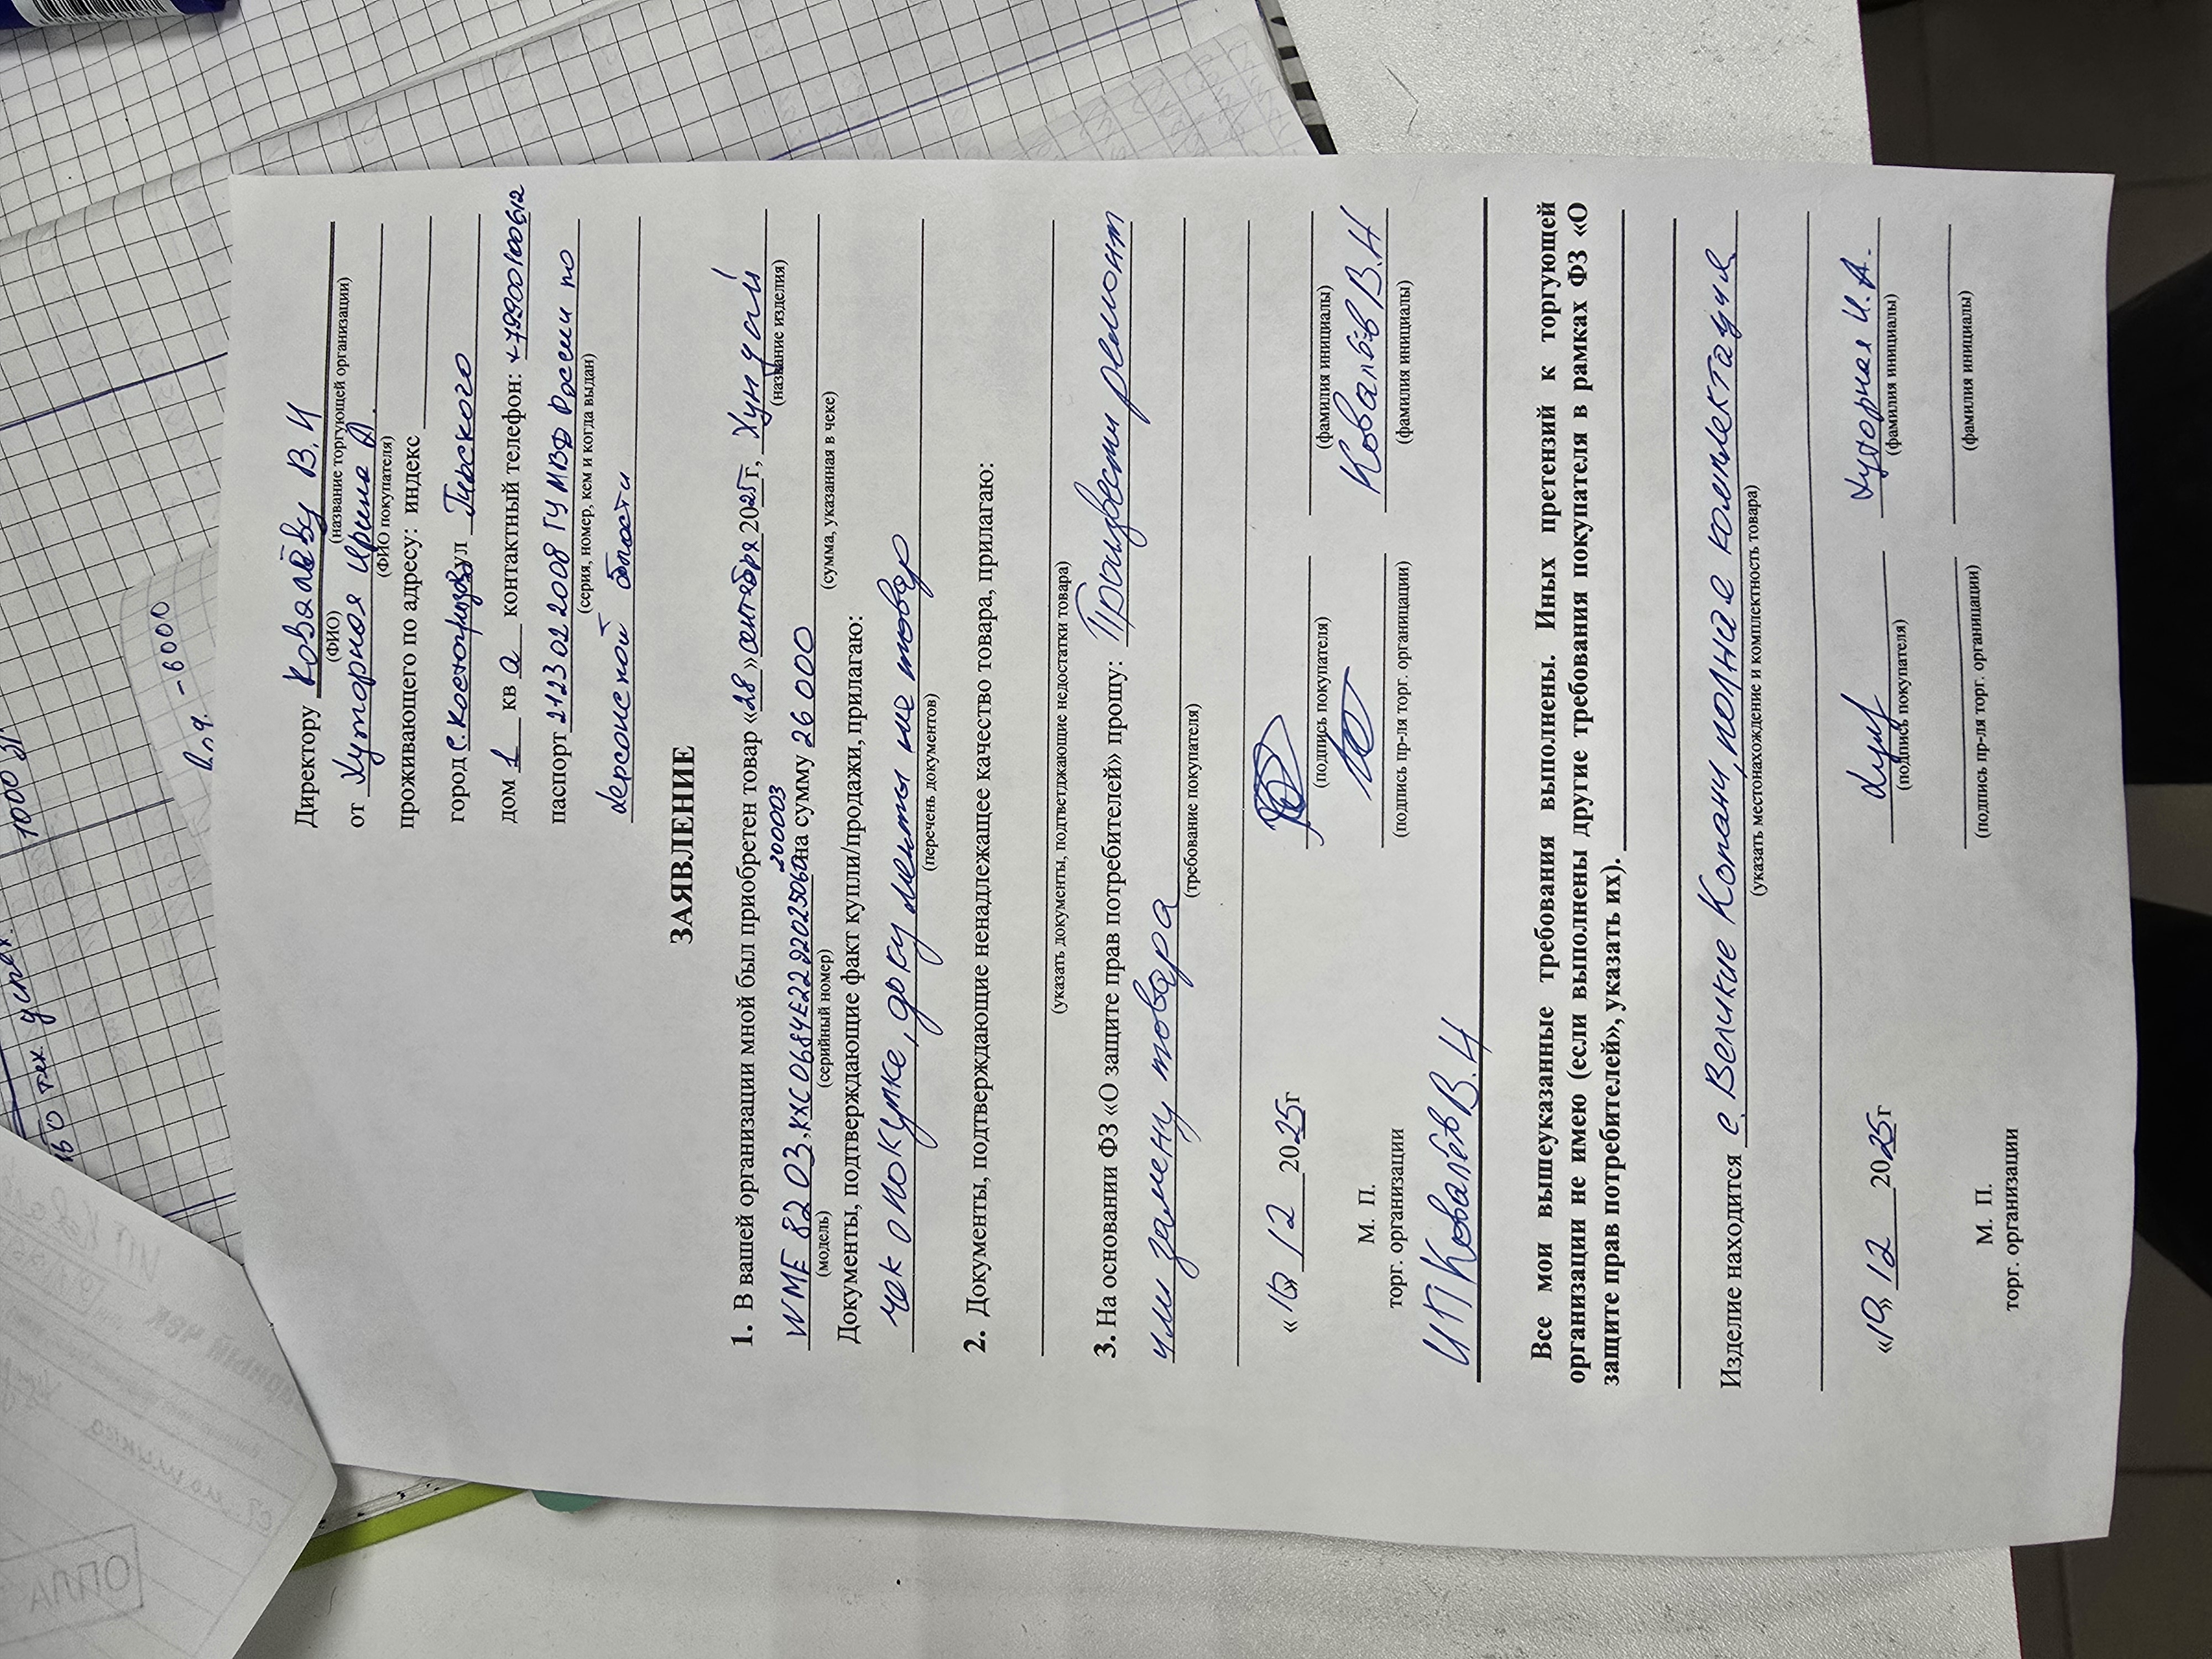 Директору Ковалёву В.И
(ФИО) (название торгующей организации)
от Хуторная Ирина А.
(ФИО покупателя)
проживающего по адресу: индекс
город с. ул
дом 1 кв а контактный телефон: +79900100612
паспорт 2123 02 2008 ГУ МВД России по
(серия, номер, кем и когда выдан)
херсонской области
ЗАЯВЛЕНИЕ
1. В вашей организации мной был приобретен товар «28» сентября 2025г, Хундай
(название изделия)
2000003
WME 8203, на сумму 26 000
(модель) (серийный номер) (сумма, указанная в чеке)
Документы, подтверждающие факт купли/продажи, прилагаю:
чек о покупке, документы на товар
(перечень документов)
2. Документы, подтверждающие ненадлежащее качество товара, прилагаю:
(указать документы, подтверждающие недостатки товара)
3. На основании ФЗ «О защите прав потребителей» прошу: Произвести ремонт
или замену товара
(требование покупателя)
« » 12 2025г
(подпись покупателя) (фамилия инициалы)
Ковалёв В.И
М. П.
торг. организации (подпись пр-ля торг. организации) (фамилия инициалы)
ИП Ковалёв В.И
Все мои вышеуказанные требования выполнены. Иных претензий к торгующей
организации не имею (если выполнены другие требования покупателя в рамках ФЗ «О
защите прав потребителей», указать их).
Изделие находится с. Великие Копани, полная комплектация
(указать местонахождение и комплектность товара)
« » 12 2025г Хуторная И.А.
(подпись покупателя) (фамилия инициалы)
М. П.
торг. организации (подпись пр-ля торг. организации) (фамилия инициалы)
1000
тех.
-6000
ОПЛА